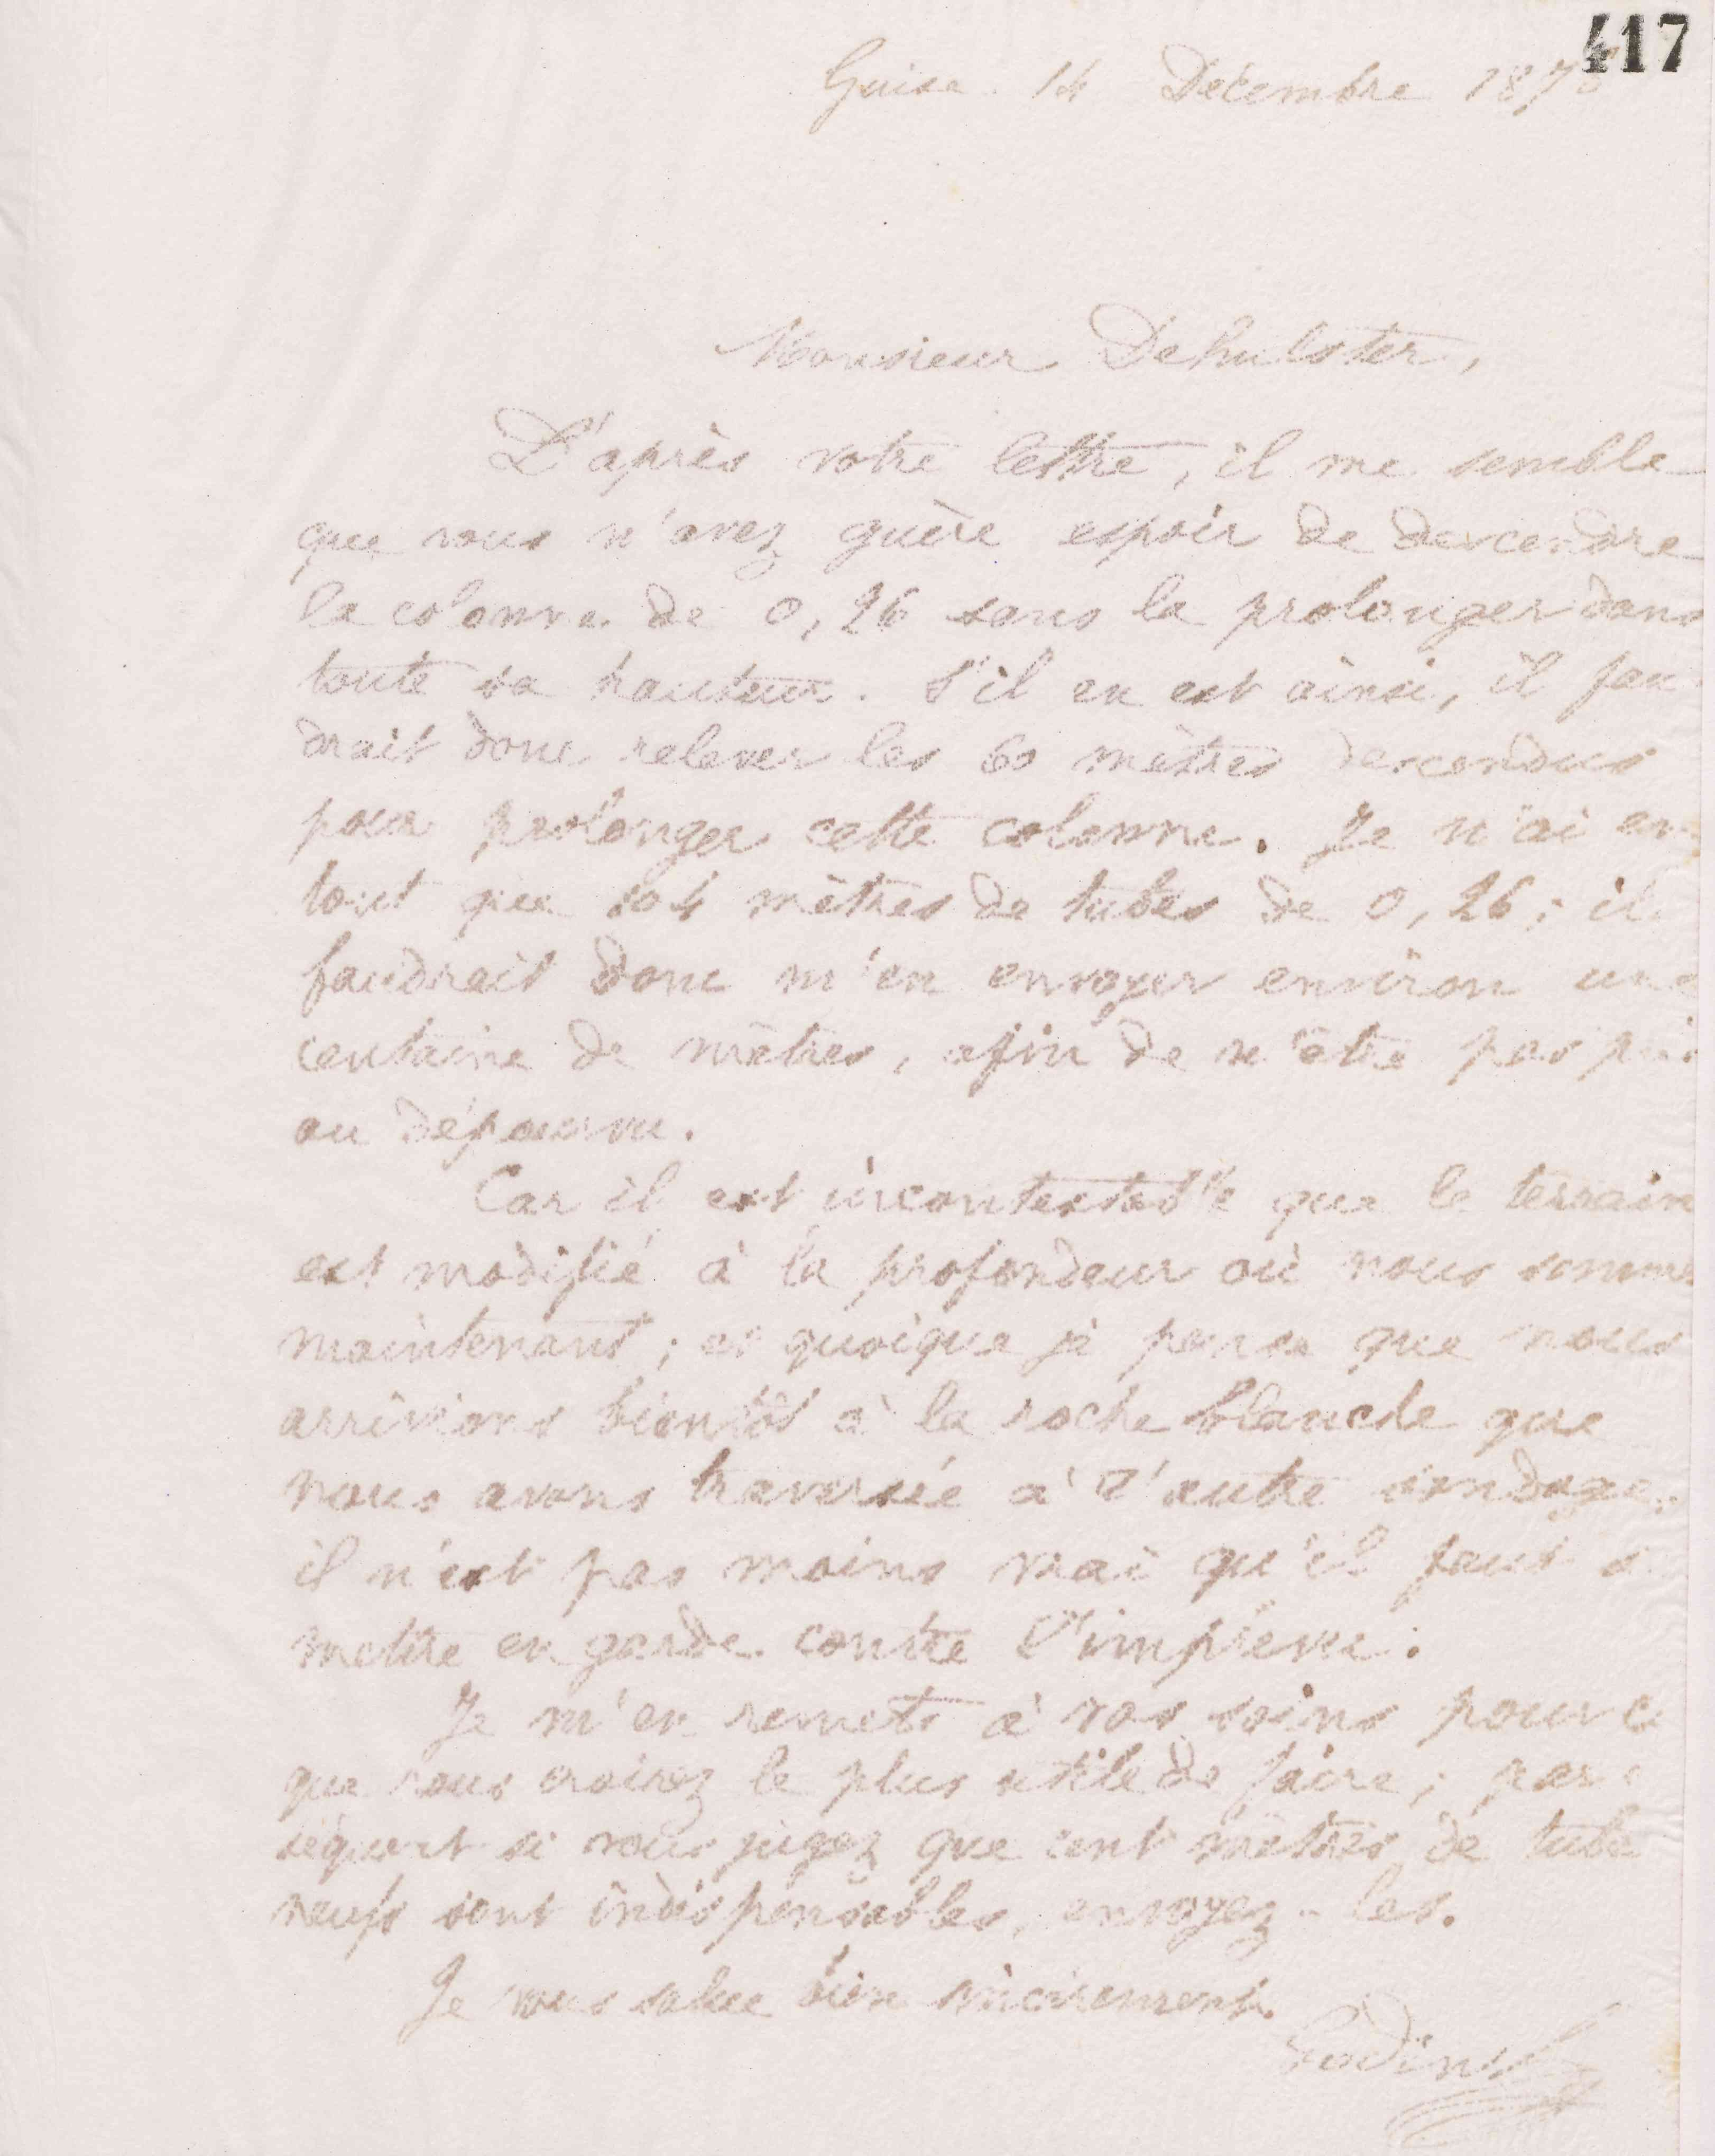 417
Guise 14 Décembre 187
Monsieur Dehulster,
D'après votre lettre, il me semble
que vous n'avez guère espoir de descendre
la colonne de 0,26 sans la prolonger dans
toute sa hauteur. S'il en est ainsi, il fau
drait donc relever les 60 mètres descendus
pour prolonger cette colonne. Je n'ai en
tout que 104 mètres de tubes de 0,26; il
faudrait donc m'en envoyer environ une
centaine de mètres, afin de n'être pas pris
au dépourvu.
Car il est incontestable que le terrain
est modifié à la profondeur où nous sommes
maintenant; et quoique je pense que nous
arrivions bientôt à la roche blanche que
nous avons traversée à l'autre sondage,
il n'est pas moins vrai qu'il faut s
mettre en garde contre l'imprévu.
Je m'en remets à vos soins pour c
que vous croirez le plus utile de faire; par c
séquent si vous jugez que cent mètres de tube
neufs sont indispensables, envoyez-les.
Je vous salue bien sincèrement.
Godin